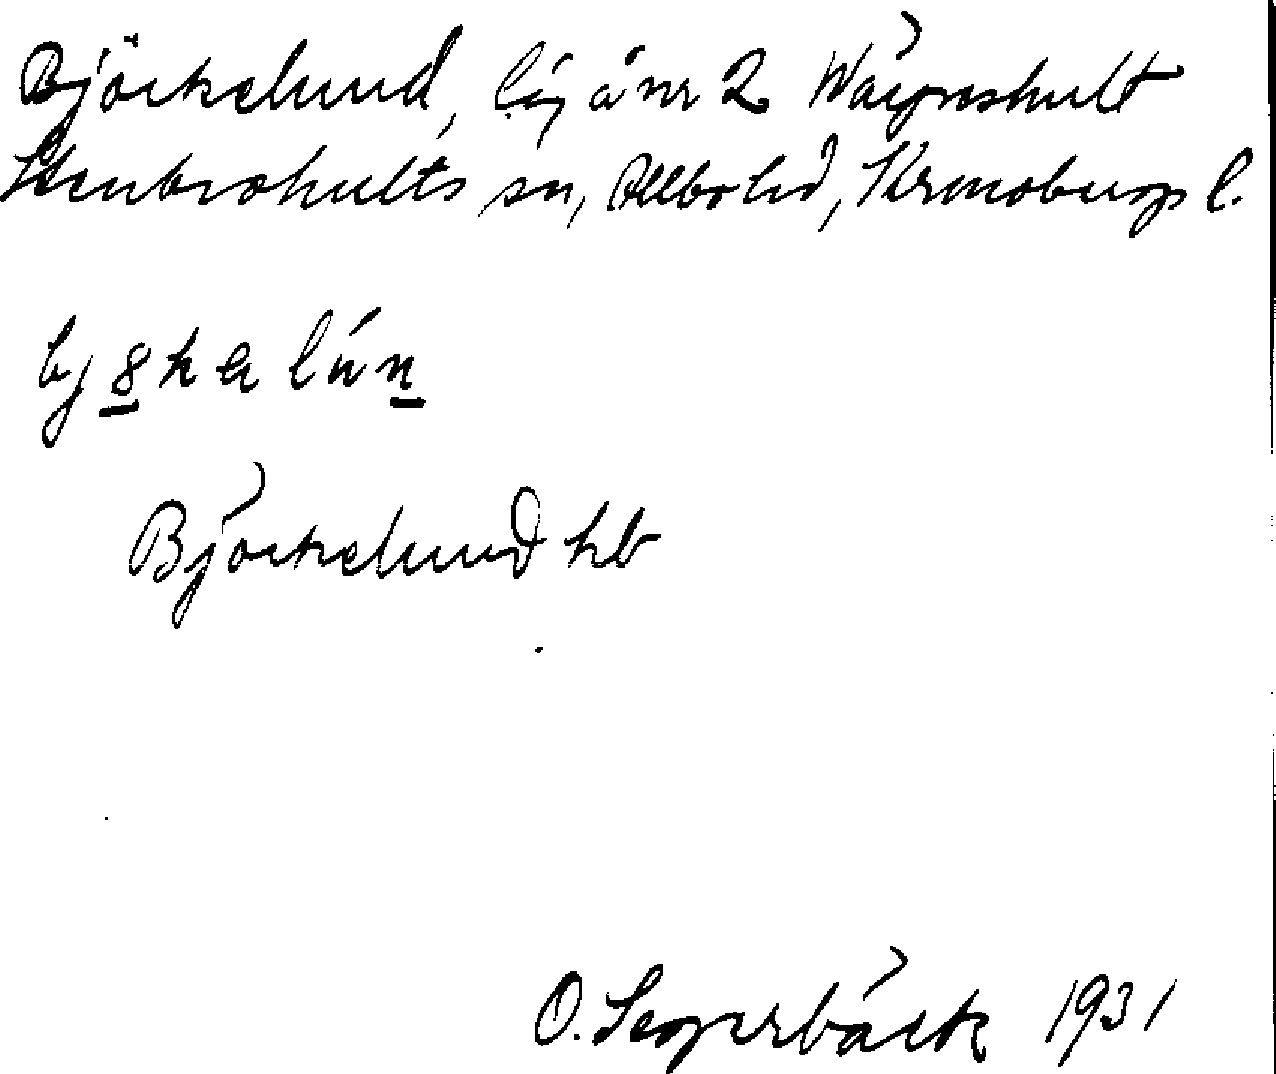 Björkelund, läg å nr 2 Vägneshult
Stenbrohults sn, Allbo hd, Kronobergs l.
bj8ka lún
Björkelund hb
O. Segerbäck 1931